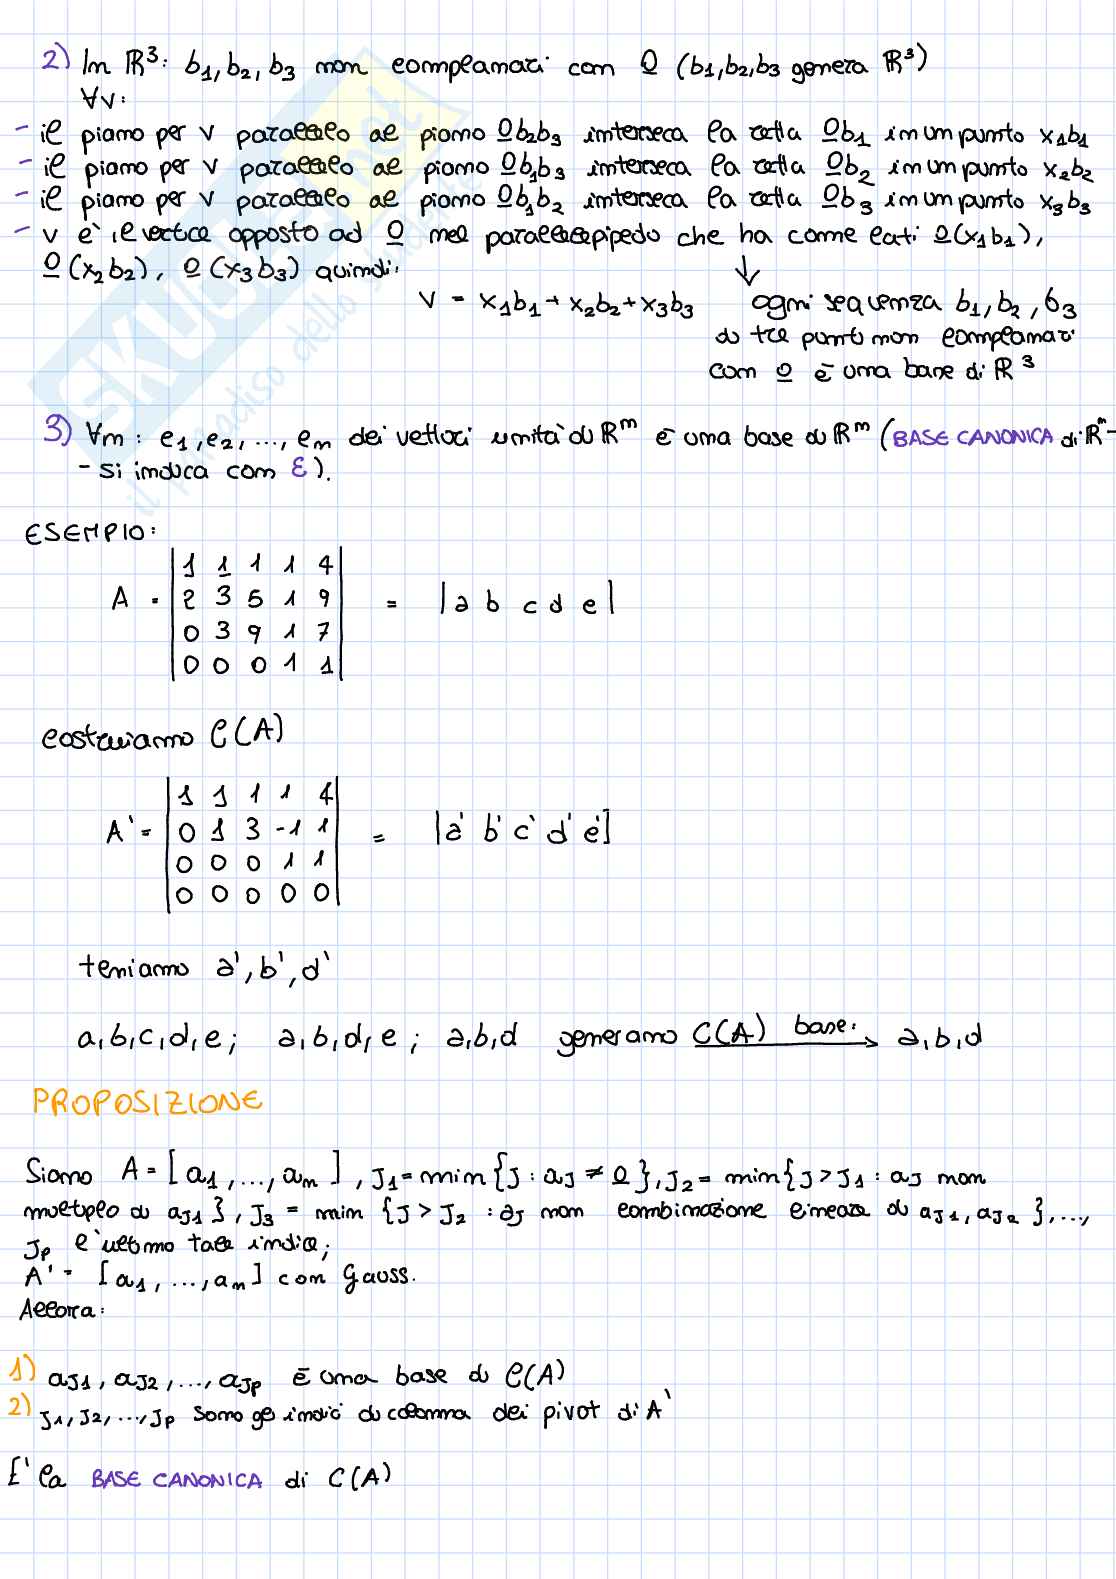 2) In ℝ³: b₁, b₂, b₃ non complanari con O (b₁,b₂,b₃ genera ℝ³)
∀v:
- il piano per v parallelo al piano Ob₂b₃ interseca la retta Ob₁ in un punto x₁b₁
- il piano per v parallelo al piano Ob₁b₃ interseca la retta Ob₂ in un punto x₂b₂
- il piano per v parallelo al piano Ob₁b₂ interseca la retta Ob₃ in un punto x₃b₃
- v è il vertice opposto ad O nel parallelepipedo che ha come lati O(x₁b₁),
O(x₂b₂), O(x₃b₃) quindi:
↓
v = x₁b₁ + x₂b₂ + x₃b₃
ogni sequenza b₁, b₂, b₃
di tre punti non complanari
con O è una base di ℝ³
3) ∀n : e₁, e₂, ..., eₙ dei vettori unità di ℝⁿ è una base di ℝⁿ (BASE CANONICA di ℝⁿ -
- si indica con ℰ).
ESEMPIO:
1 1 1 1 4
A = 2 3 5 1 9 = |a b c d e|
0 3 9 1 7
0 0 0 1 1
costruiamo C(A)
1 1 1 1 4
A' = 0 1 3 -1 1 = |a' b' c' d' e']
0 0 0 1 1
0 0 0 0 0
teniamo a', b', d'
a,b,c,d,e; a,b,d,e; a,b,d generano C(A) base: → a,b,d
PROPOSIZIONE
Siano A = [a₁, ..., aₙ], J₁ = min{J : aJ ≠ O}, J₂ = min{J > J₁ : aJ non
multiplo di aJ₁}, J₃ = min {J > J₂ : aJ non combinazione lineare di aJ₁, aJ₂ }, ...,
Jp l'ultimo tale indice;
A' = [a₁, ..., aₙ] con Gauss.
Allora:
1) aJ₁, aJ₂, ..., aJp è una base di C(A)
2) J₁, J₂, ..., Jp sono gli indici di colonna dei pivot di A'
E' la BASE CANONICA di C(A)